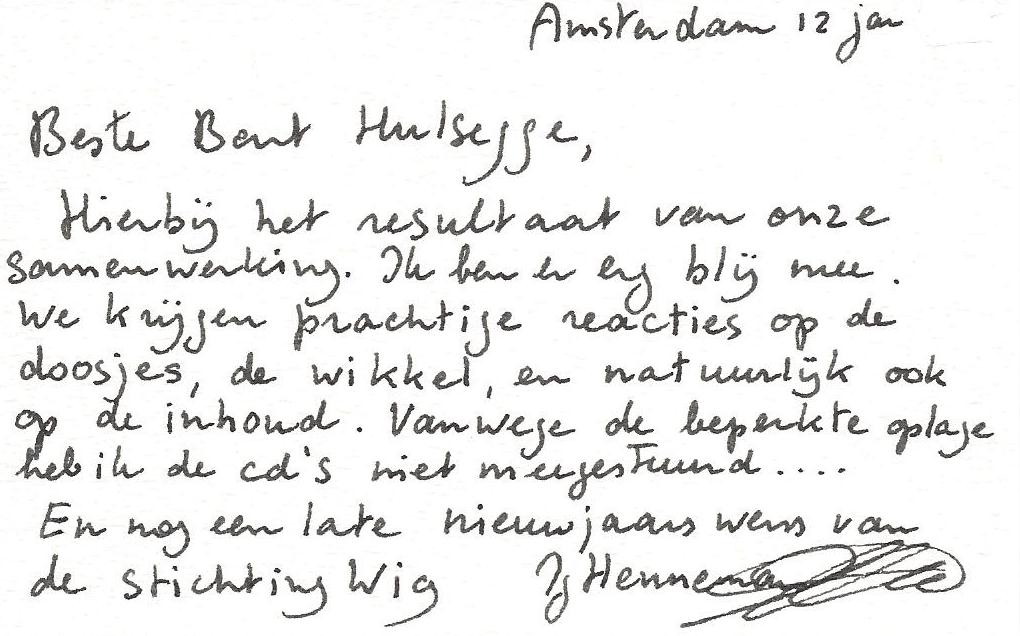 Amsterdam 12 jan
Beste Bout Hulsegge,
Hierbij het resultaat van onze
samenwerking. Ik ben er erg blij mee.
We krijgen prachtige reacties op de
doosjes, de wikkel, en natuurlijk ook
op de inhoud. Vanwege de beperkte oplage
heb ik de cd's niet meegestuurd....
En nog een late nieuwjaars wens van
de stichting Wig Ig Henneman